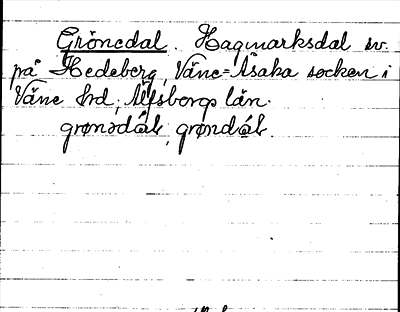 Grönedal. Hagmarksdal sv.
på Hedeberg, Väne-Åsaka socken i
Väne hrd, Älfsborgs län.
grønədál, grøndál.